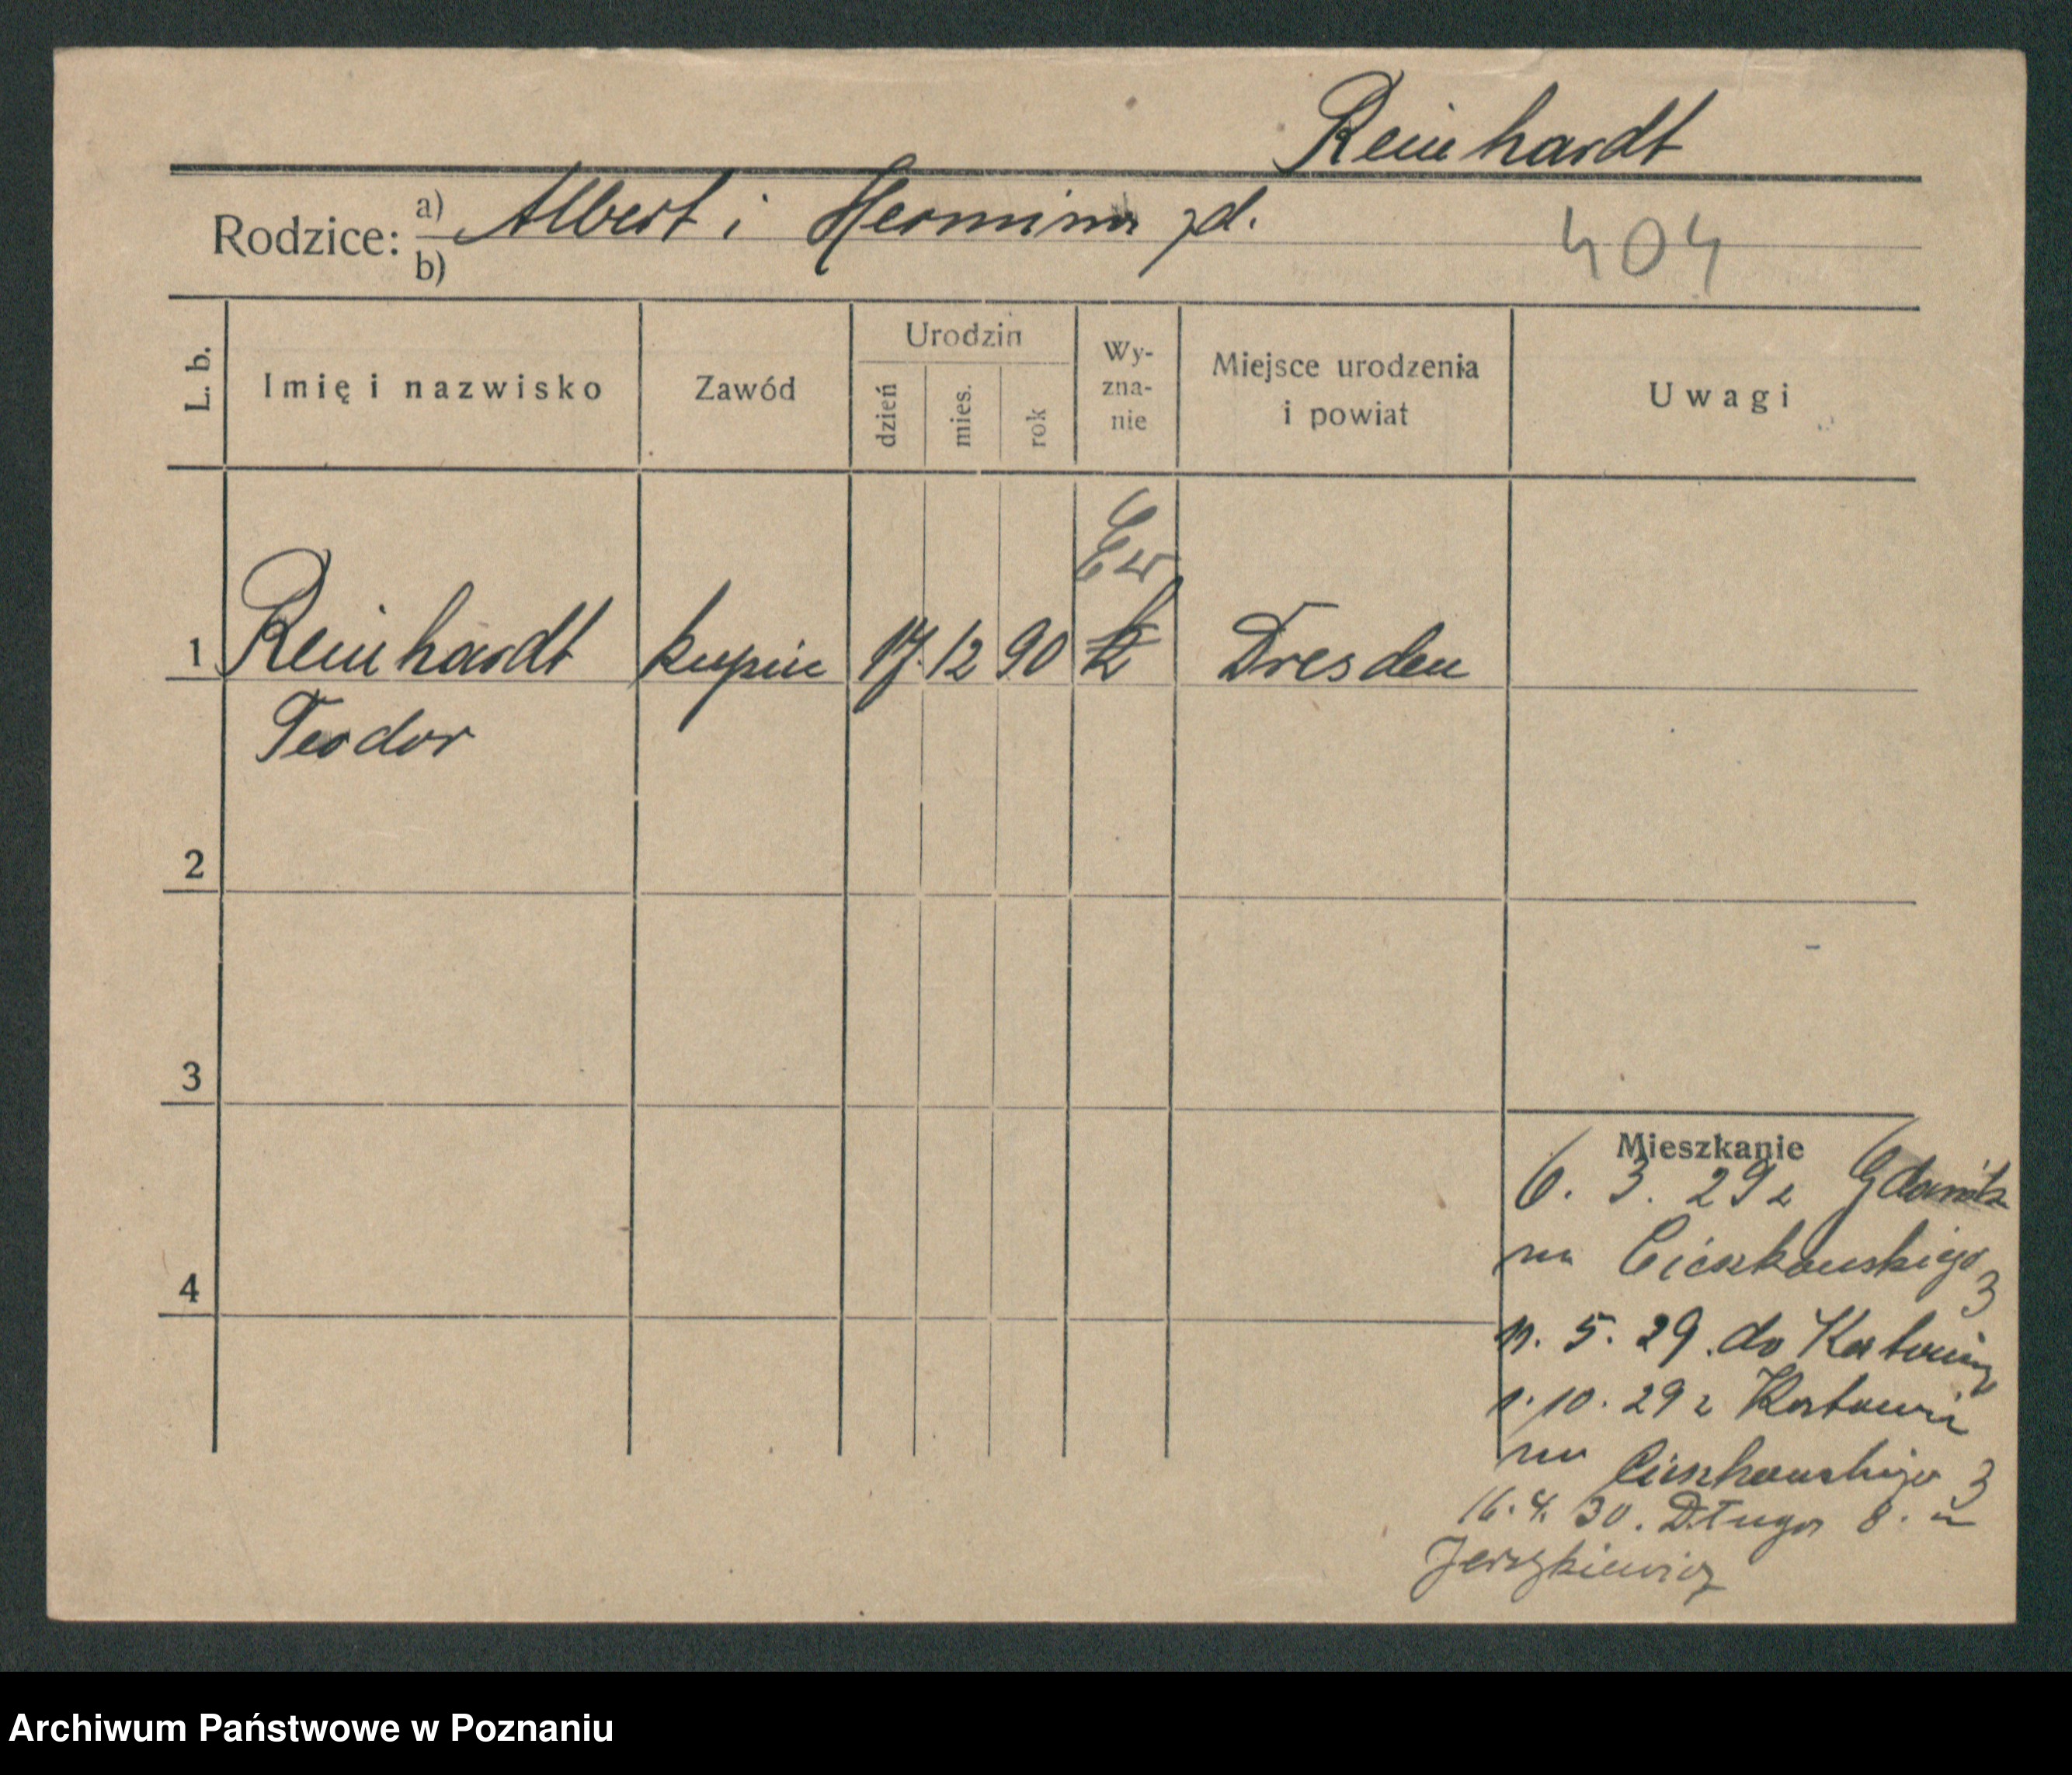 Reinhardt
Rodzice: a) Albert i Hermina zd.
b)
404
L. b.
Imię i nazwisko
Zawód
Urodzin
dzień
mies.
rok
Wy-
zna-
nie
Miejsce urodzenia
i powiat
Uwagi
Ew
1 Reinhardt kupiec 17. 12 90 Dresden
Teodor
2
3
4
Mieszkanie
6. 3. 29 z Gdańsk
na Cieszkowskiego 3
5. 29. do Katowic
1. 10. 29 z Katowic
na Cieszkowskiego 3
16. 4. 30. Długa 8. u
Jerzykiewicz
Archiwum Państwowe w Poznaniu